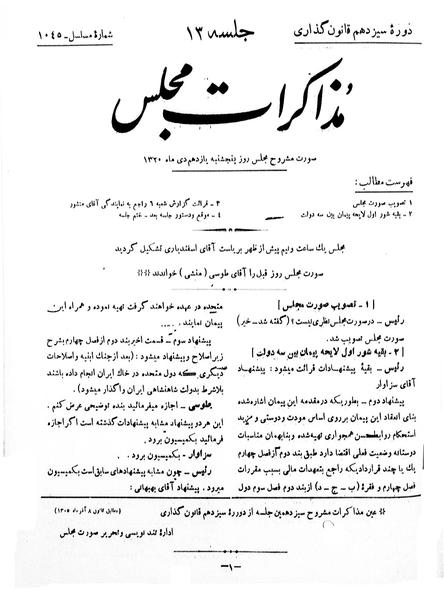 دورهٔ سیزدهم قانون گذاری
جلسه ۱۳
شمارهٔ مسلسل - ۱۰۴۵
مذاکرات مجلس
صورت مشروح مجلس روز پنجشنبه یازدهم دی ماه ۱۳۲۰
فهرست مطالب:
۱ - تصویب صورت مجلس
۲ - بقیه شور اول لایحه پیمان بین سه دولت
۳ - قرائت گزارش شعبه ۶ راجع به نمایندگی آقای منشور
۴ - موقع و دستور جلسه بعد - ختم جلسه
مجلس یك ساعت و نیم پیش از ظهر بریاست آقای اسفندیاری تشکیل گردید
صورت مجلس روز قبل را آقای طوسی (منشی) خواندند
[۱ - تصویب صورت مجلس]
رئیس - در صورت مجلس نظری نیست؟ (گفته شد - خیر)
صورت مجلس تصویب شد.
[۲ - بقیه شور اول لایحه پیمان بین سه دولت]
رئیس - بقیهٔ پیشنهادات قرائت میشود: پیشنهاد
آقای سزاوار
پیشنهاد دوم - بطوریکه در مقدمه این پیمان اشاره شده
بنای انعقاد این پیمان بر روی اساس مودت و دوستی و مزید
استحکام روابط حسن همجواری تهیه شده و بنا بهمان مناسبات
دوستانه وضعیت فعلی اقتضا دارد طبق بند دوم از فصل چهارم
یك یا چند قرارداد یکه راجع بتعهدات مالی بسبب مقررات
فصل چهارم و فقرهٔ (ب - ج - د) از بند دوم فصل سوم دول
متحده در عهده خواهند گرفت تهیه نموده و همراه این
پیمان نمایند....
پیشنهاد سوم - قسمت اخیر بند دوم از فصل چهارم بشرح
زیر اصلاح و پیشنهاد میشود: (بعد از جنك ابنیه و اصلاحات
دیگری که دول متحده در خاك ایران انجام داده باشند
بلاشرط بدولت شاهنشاهی ایران واگذار میشود).
طوسی - اجازه میفرمائید بنده توضیحی عرض کنم.
این هر دو پیشنهاد مشابه پیشنهادات گذشته است اگر اجازه
فرمائید بکمیسیون برود.
سزاوار - بکمیسیون برود.
رئیس - چون مشابه پیشنهادهای سابق است بکمیسیون
میرود. پیشنهاد آقای بهبهانی:
عین مذاکرات مشروح سیزدهمین جلسه از دورهٔ سیزدهم قانون گذاری
(مطابق قانون ۸ آذر ماه ۱۳۰۵)
ادارهٔ تند نویسی و تحریر صورت مجلس
-۱-